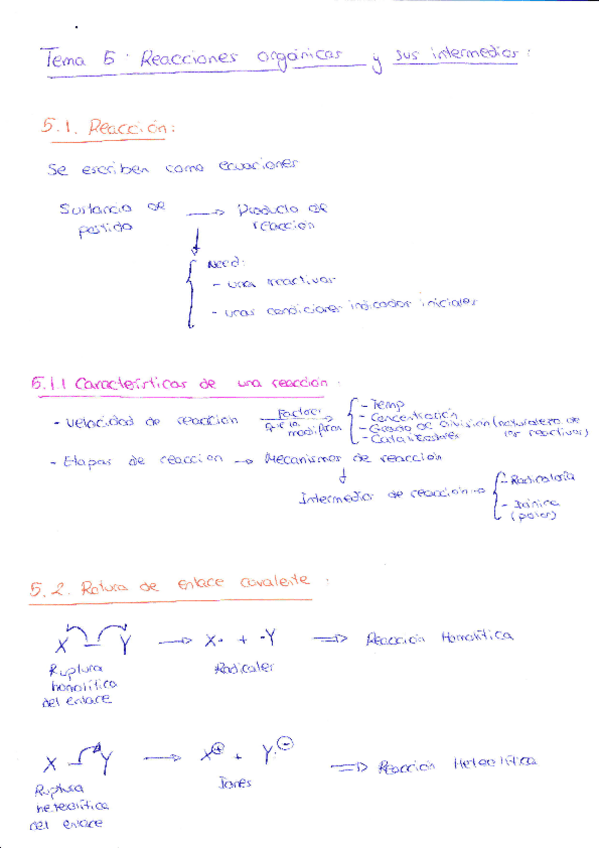 Tema 5: Reacciones orgánicas y sus intermedios:
5.1. Reacción:
Se escriben como ecuaciones
Sustancia de partida → Producto de reacción
Need:
- unos reactivos
- unas condiciones indicadas iniciales
5.1.1 Características de una reacción:
- Velocidad de reacción Factores que la modifican →
- Temp
- Concentración
- Grado de división (naturaleza de los reactivos)
- Catalizadores
- Etapas de reacción → Mecanismos de reacción
Intermedios de reacción →
- Radicalaria
- Iónica (polar)
5.2. Rotura de enlace covalente:
X — Y → X· + ·Y ⇒ Reacción Homolítica
Ruptura homolítica del enlace
Radicales
X — Y → X⊕ + Y:⊖ ⇒ Reacción Heterolítica
Ruptura heterolítica del enlace
Iones